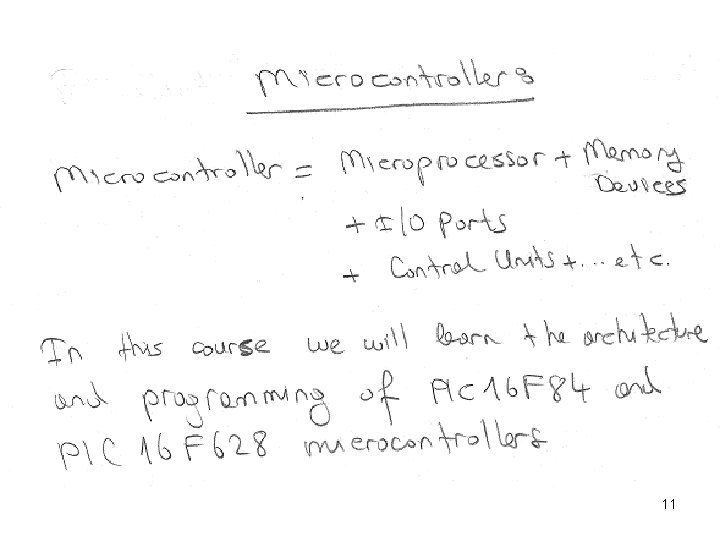 Microcontrollers
Microcontroller = Microprocessor + Memory
Devices
+ I/O Ports
+ Control Units + ... etc.
In this course we will learn the architecture
and programming of PIC16F84 and
PIC 16F628 microcontrollers
11